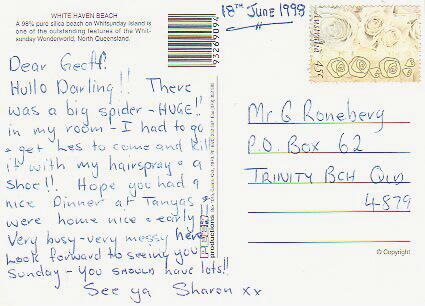 WHITE HAVEN BEACH
A 98% pure silica beach on Whitsunday Island is
one of the outstanding features of the Whit-
sunday Wonderworld, North Queensland.
Dear Geoff.
Hullo Darling!! There
was a big spider - HUGE!!
in my room - I had to go
& get Les to come and kill
it with my hairspray & a
shoe!! Hope you had a
nice Dinner at Tanyas &
were home nice & early
Very busy - very messy here
Look forward to seeing you
Sunday - You should have lots!!
See ya Sharon xx
9326909
productions
18TH JUNE 1998
Australia
45c
Mr G Roneberg
P.O. Box 62
TRINITY BCH QLD
4879
© Copyright